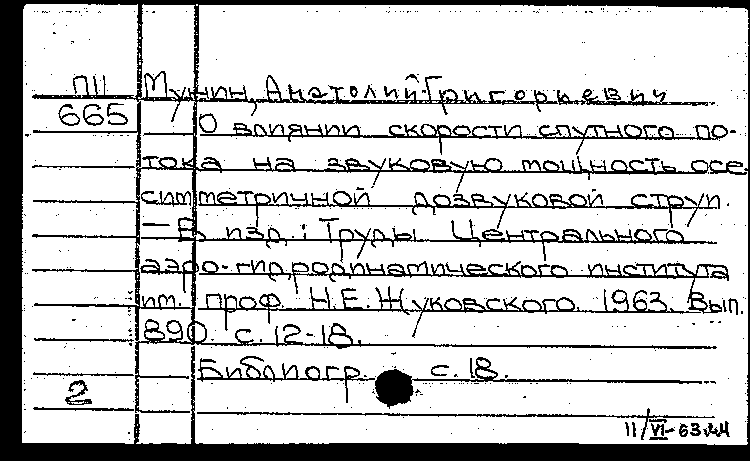 П11 Мунин, Анатолий Григорьевич
665 О влиянии скорости спутного по-
тока на звуковую мощность осе
симметричной дозвуковой струи.
— В изд.: Труды Центрального
аэро-гидродинамического института
им. проф. Н.Е.Жуковского. 1963. Вып.
890 с. 12-18.
Библиогр. с. 18.
2
11/VI-63